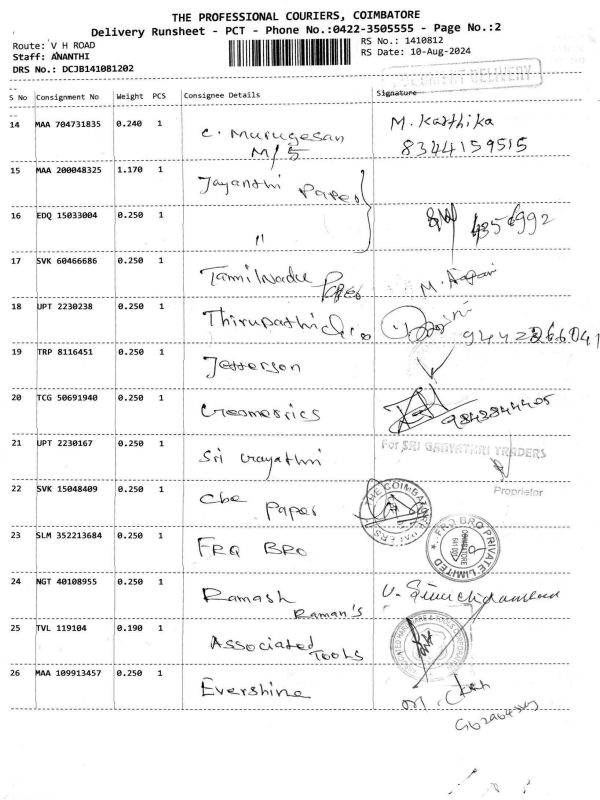 THE PROFESSIONAL COURIERS, COIMBATORE
Delivery Runsheet - PCT - Phone No.:0422-3505555 - Page No.:2
Route: V H ROAD
RS No.: 1410812
Staff: ANANTHI
RS Date: 10-Aug-2024
DRS No.: DCJB141081202
DELIVERY
S No Consignment No Weight PCS Consignee Details Signature
14 MAA 704731835 0.240 1 C. Murugesan M. Karthika
M/S 8344159515
15 MAA 200048325 1.170 1 Jayanthi Paper
16 EDQ 15033004 0.250 1 "
17 SVK 60466686 0.250 1 Tamilnadu Paper M.
18 UPT 2230238 0.250 1 Thirupathi
19 TRP 8116451 0.250 1 Jefferson
20 TCG 50691940 0.250 1 Creomerics 9842844405
21 UPT 2230167 0.250 1 Sri Gayathri For SRI GAYATHRI TRADERS
Proprietor
22 SVK 15048409 0.250 1 Cbe Paper THE COIMBATORE PAPERS
23 SLM 352213684 0.250 1 FRQ BRO FRQ BRO PRIVATE LIMITED
COIMBATORE
24 NGT 40108955 0.250 1 Ramash
Raman's
25 TVL 119104 0.190 1 Associated Tools
26 MAA 109913457 0.250 1 Evershine